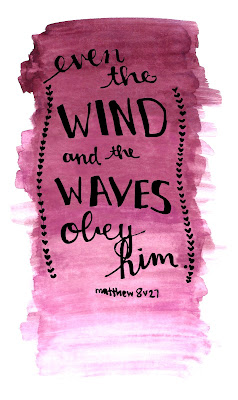 even
the
WIND
and the
WAVES
obey
him.
matthew 8v27